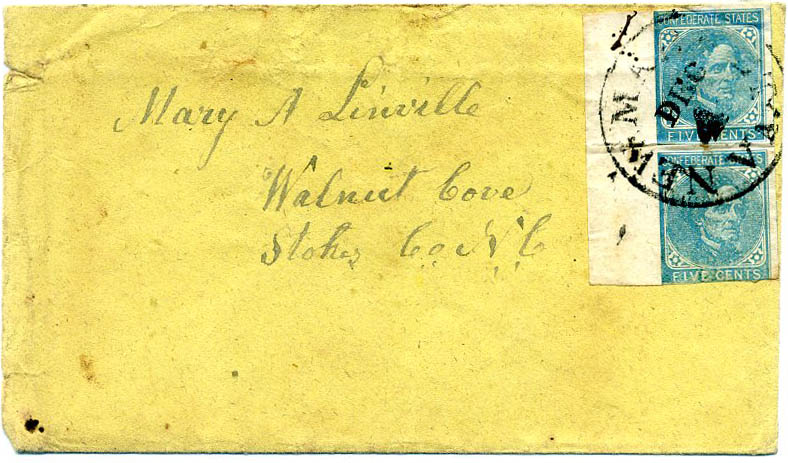 Mary A Linville
Walnut Cove
Stokes Co. N.C
CONFEDERATE STATES
FIVE CENTS
CONFEDERATE STATES
FIVE CENTS
NEW MA
DEC
VA